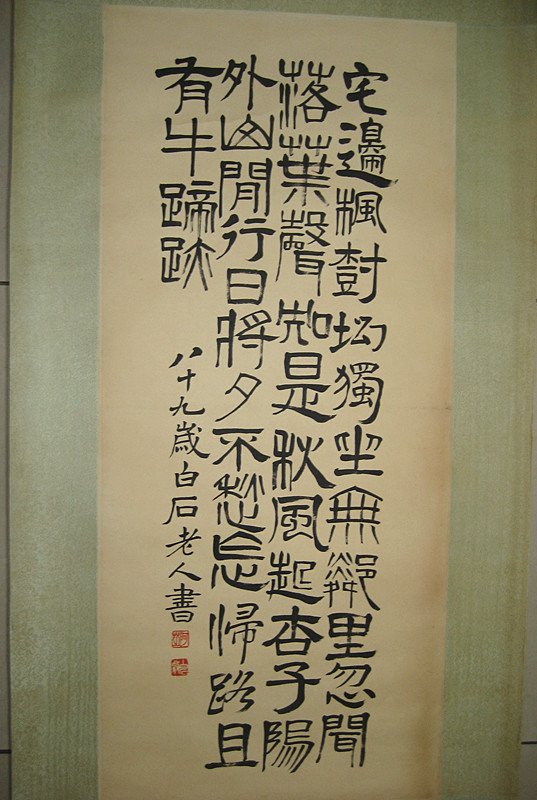 宅邊楓樹坳獨坐無鄰里忽聞
落葉聲知是秋風起杏子隖
外山閒行日將夕不愁忘歸路且
有牛蹄跡
八十九歲白石老人書